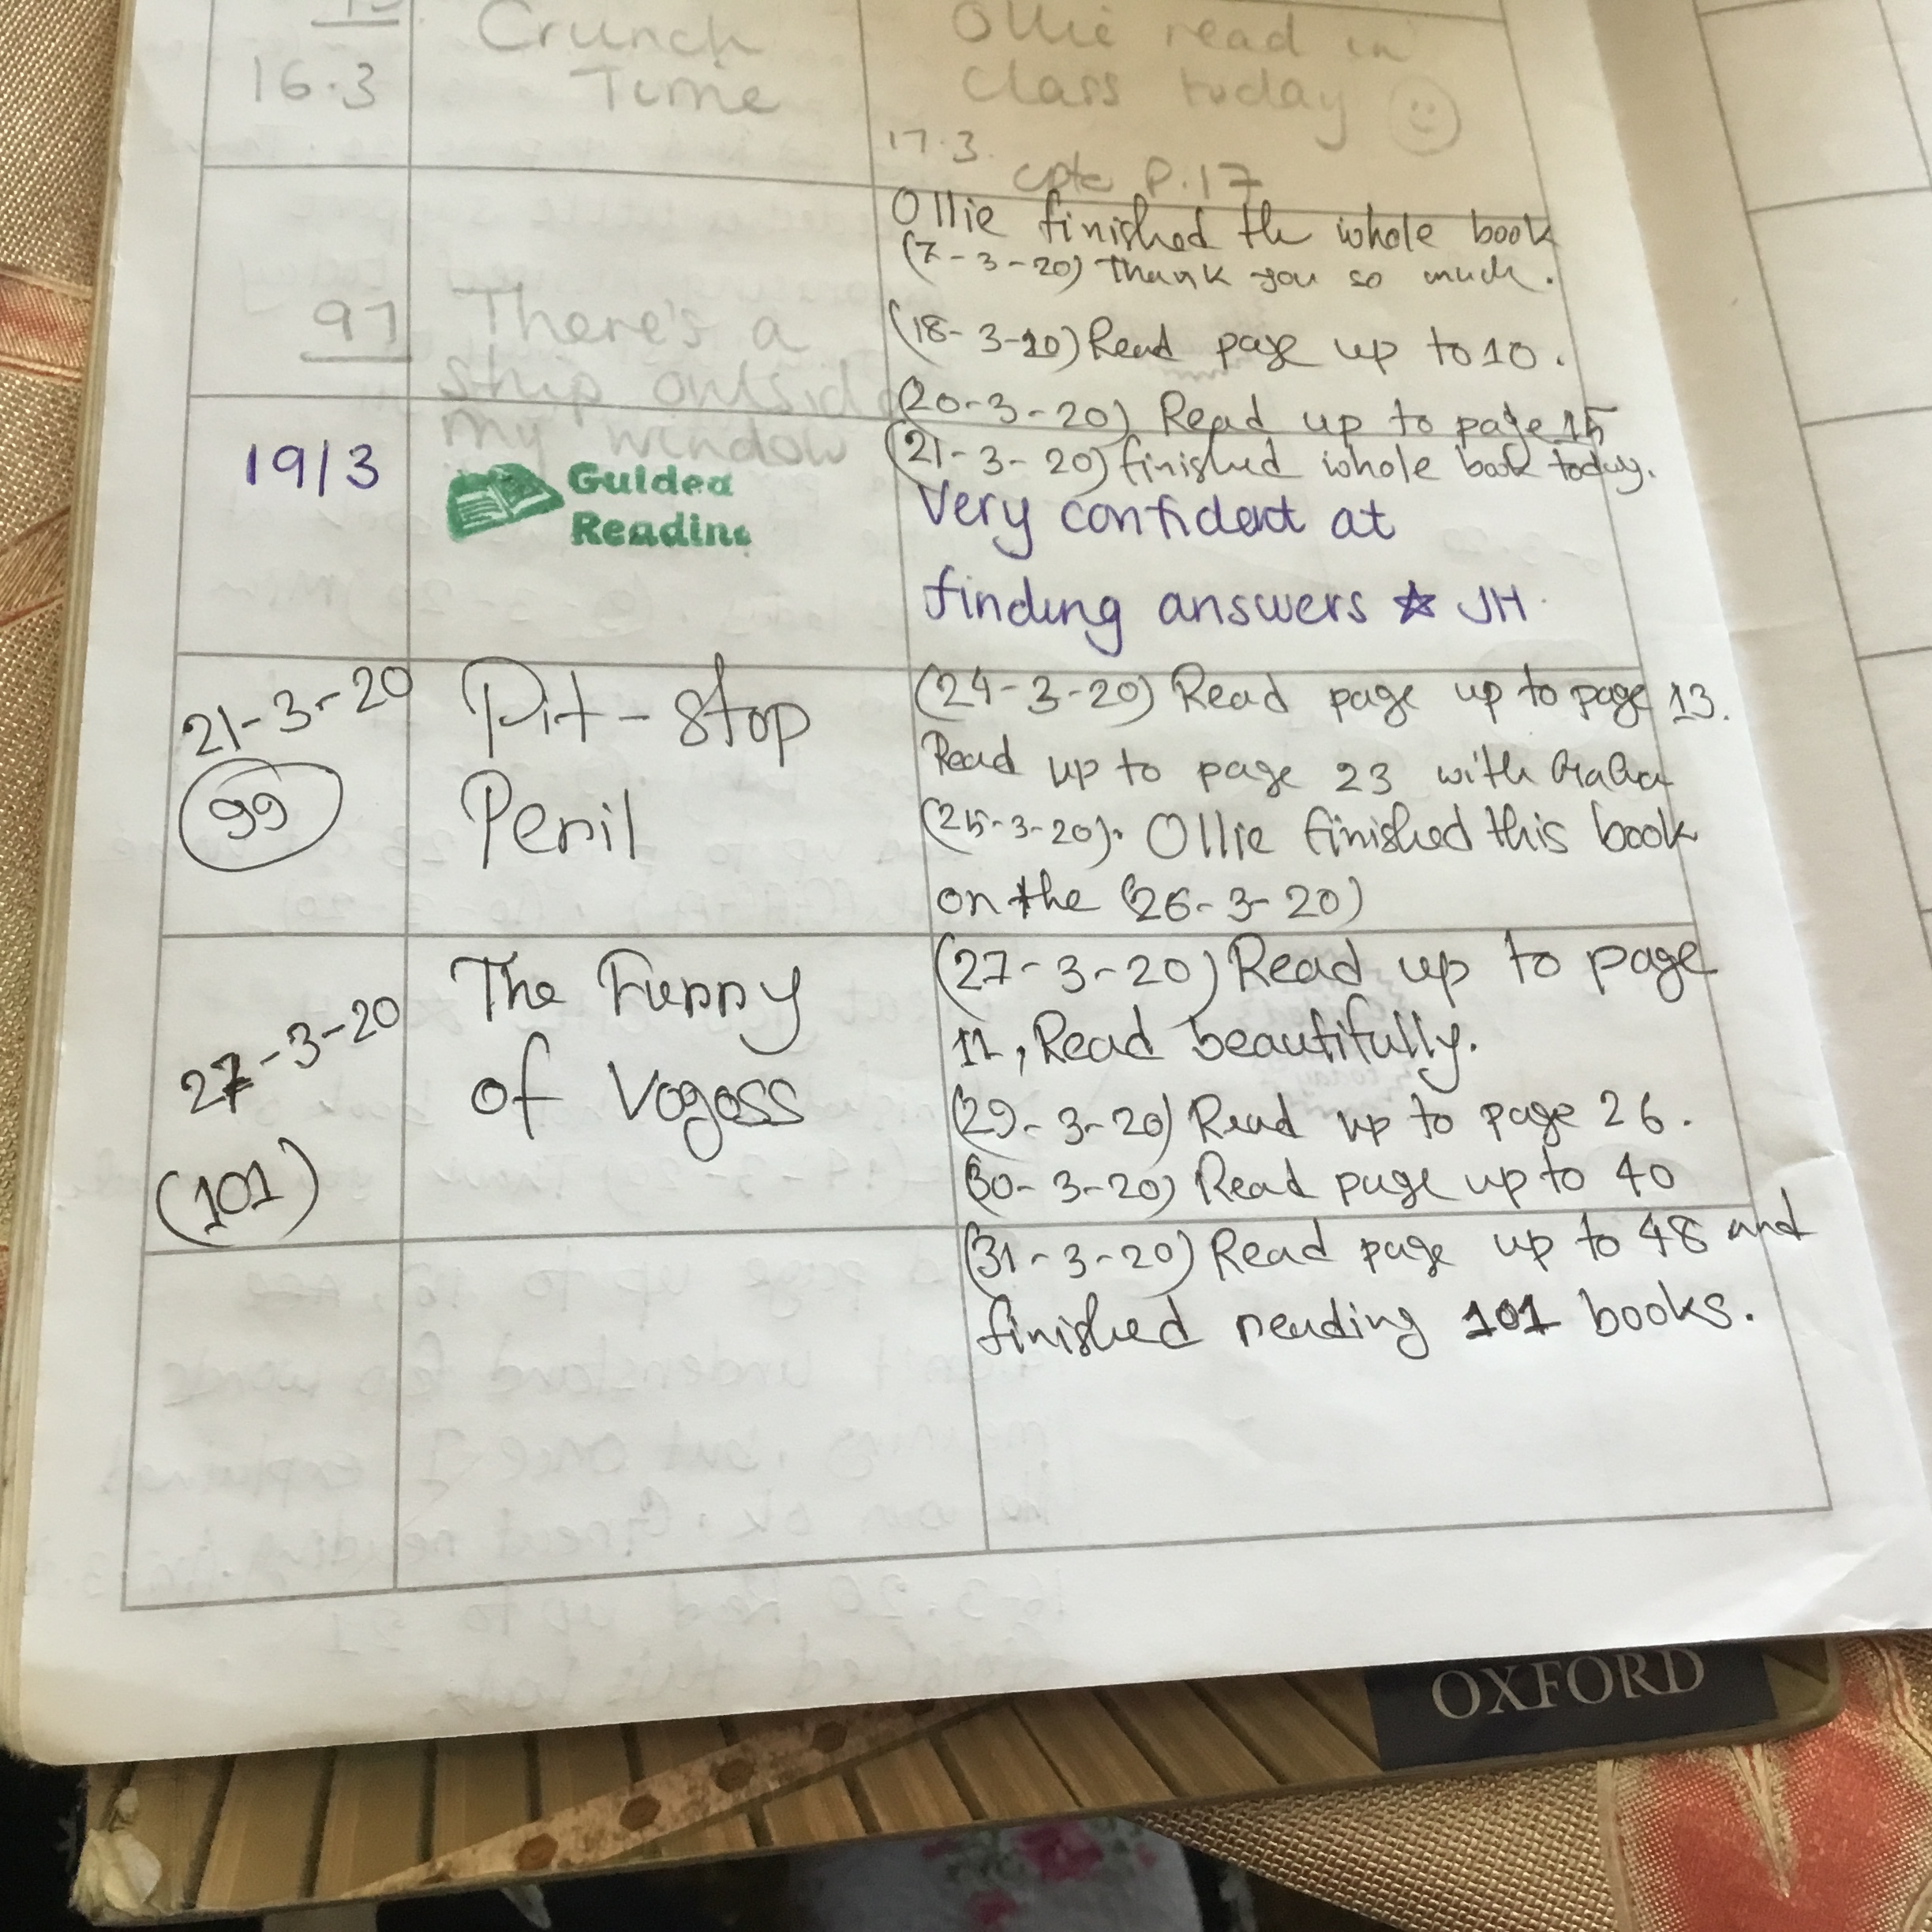 16.3
Crunch
Time
Ollie read in
class today
17.3.
P.17
97
There's a
ship outside
my window
Ollie finished the whole book
(7-3-20) Thank you so much.
(18-3-20) Read page up to 10.
(20-3-20) Read up to page 15
(21-3-20) finished whole book today.
19/3
Guided
Reading
Very confident at
finding answers ☆ JH
21-3-20
99
Pit-Stop
Peril
(24-3-20) Read page up to page 13.
Read up to page 23 with
(25-3-20). Ollie finished this book
on the (26-3-20)
27-3-20
(101)
The Funny
of Vogoss
(27-3-20) Read up to page
11, Read beautifully.
(29-3-20) Read up to page 26.
(30-3-20) Read page up to 40
(31-3-20) Read page up to 48 and
finished reading 101 books.
OXFORD